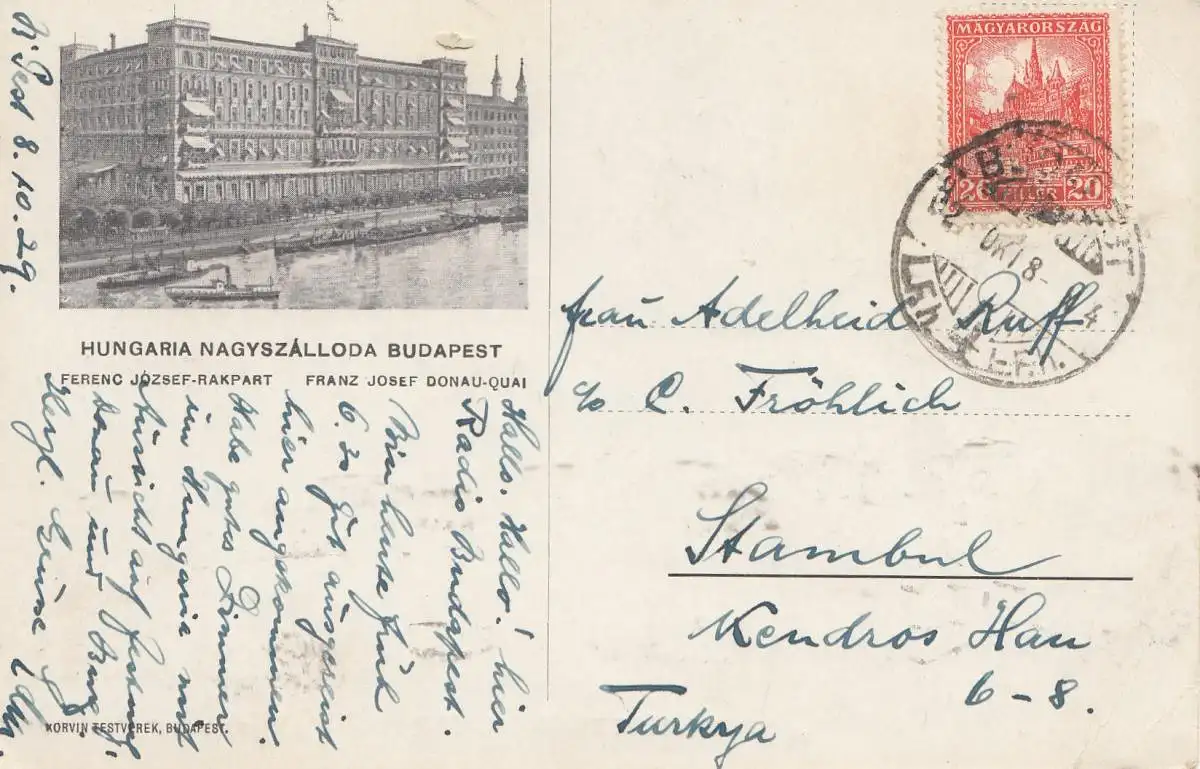 B. Pest 8.10.29.
HUNGARIA NAGYSZÁLLODA BUDAPEST
FERENC JÓZSEF-RAKPART FRANZ JOSEF DONAU-QUAI
Hallo. Hallo! hier
Radio Budapest.
Bin heute früh
6.30 gut ausgereist
hier angekommen.
Habe gutes Zimmer
im Hungaria mit
Aussicht auf Festung
Donau und Burg.
Herzl. Grüsse
KORVIN TESTVÉREK, BUDAPEST.
MAGYARORSZÁG
20 FILLÉR 20
OKT 8
frau Adelheid Ruff
c/o C. Fröhlich
Stambul
Kendros Han
6-8.
Turkya